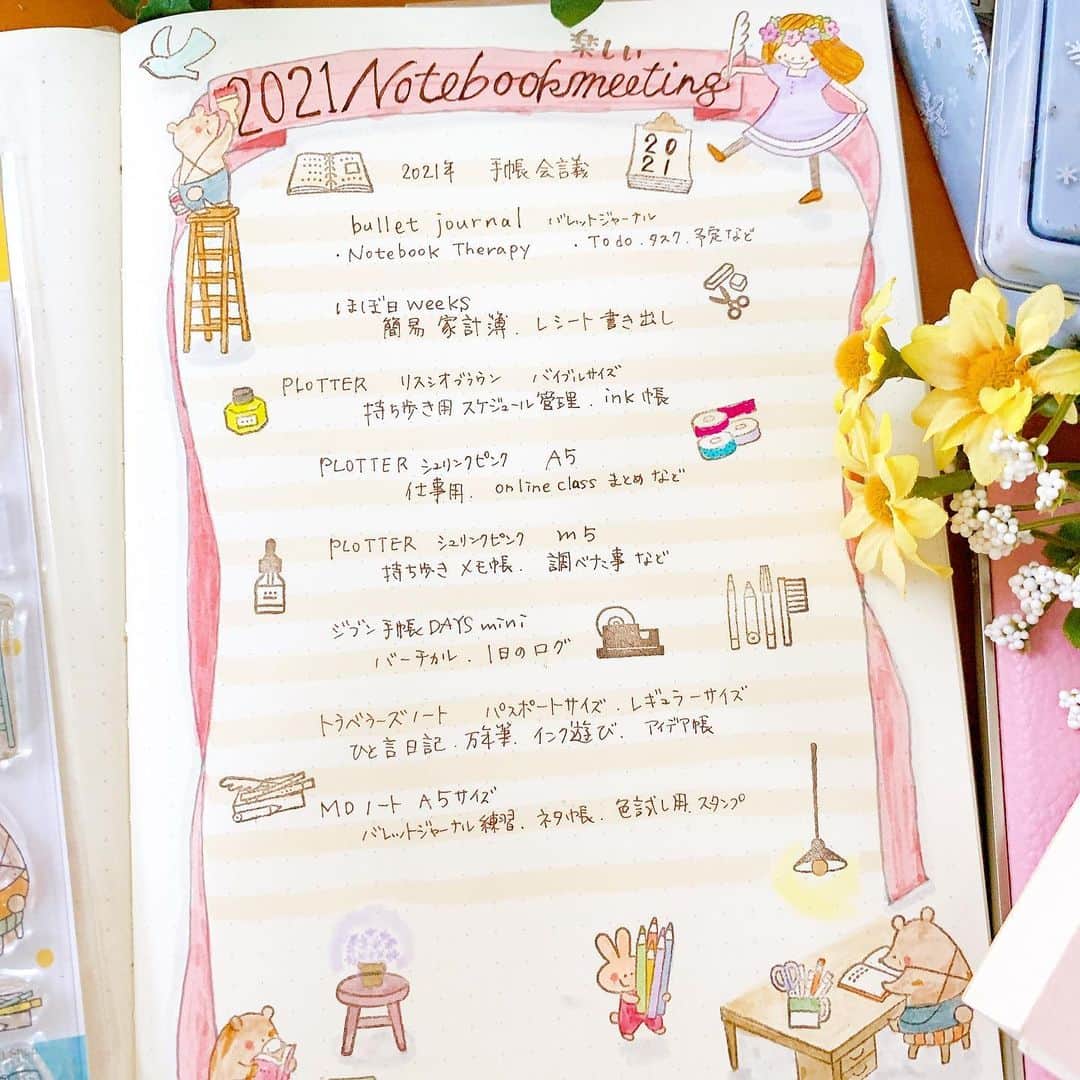 楽しい
2021 Notebook meeting
20
21
2021年 手帳会議
bullet journal バレットジャーナル
・Notebook Therapy ・To do.タスク.予定など
ほぼ日 weeks
簡易 家計簿. レシート書き出し
PLOTTER リスシオブラウン バイブルサイズ
持ち歩き用 スケジュール管理. ink帳
PLOTTER シュリンクピンク A5
仕事用. online class まとめなど
PLOTTER シュリンクピンク m5
持ち歩き メモ帳. 調べた事など
ジブン手帳 DAYS mini
バーチカル. 1日のログ
トラベラーズノート パスポートサイズ.レギュラーサイズ
ひと言日記.万年筆.インク遊び. アイデア帳
MDノート A5サイズ
バレットジャーナル練習.ネタ帳.色試し用.スタンプ